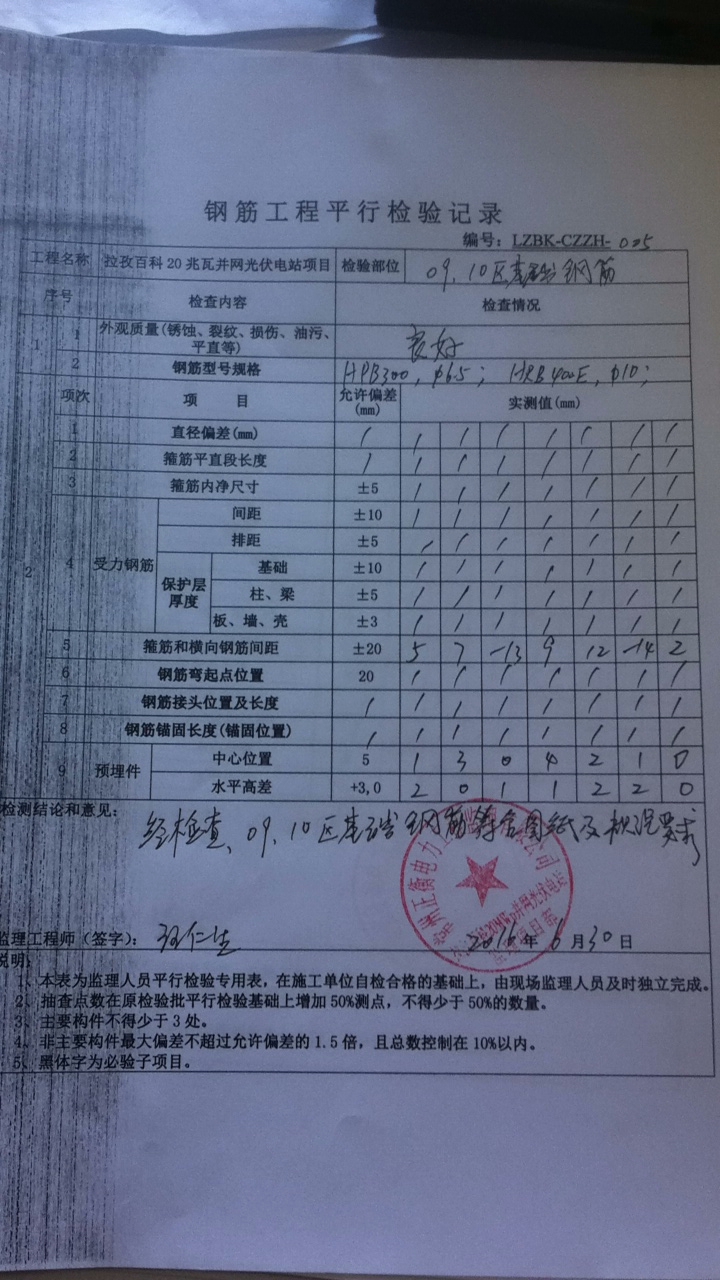 钢筋工程平行检验记录
编号：LZBK-CZZH-005
工程名称 拉孜百科20兆瓦并网光伏电站项目 检验部位 09、10区基础钢筋
序号 检查内容 检查情况
1 1 外观质量(锈蚀、裂纹、损伤、油污、平直等) 良好
2 钢筋型号规格 HPB300，φ6.5；HRB400E，φ10；
2 项次 项 目 允许偏差(mm) 实测值(mm)
1 直径偏差(mm) / / / / / / / /
2 箍筋平直段长度 / / / / / / / /
3 箍筋内净尺寸 ±5 / / / / / / /
4 受力钢筋 间距 ±10 / / / / / / /
排距 ±5 / / / / / / /
保护层厚度 基础 ±10 / / / / / / /
柱、梁 ±5 / / / / / / /
板、墙、壳 ±3 / / / / / / /
5 箍筋和横向钢筋间距 ±20 5 7 -13 9 12 -14 2
6 钢筋弯起点位置 20 / / / / / / /
7 钢筋接头位置及长度 / / / / / / / /
8 钢筋锚固长度(锚固位置) / / / / / / / /
9 预埋件 中心位置 5 1 3 0 4 2 1 0
水平高差 +3,0 2 0 1 1 2 2 0
检测结论和意见：
经检查、09、10区基础钢筋符合图纸及规范要求
监理工程师（签字）： 2016年6月30日
说明：
1、本表为监理人员平行检验专用表，在施工单位自检合格的基础上，由现场监理人员及时独立完成。
2、抽查点数在原检验批平行检验基础上增加50%测点，不得少于50%的数量。
3、主要构件不得少于3处。
4、非主要构件最大偏差不超过允许偏差的1.5倍，且总数控制在10%以内。
5、黑体字为必验子项目。